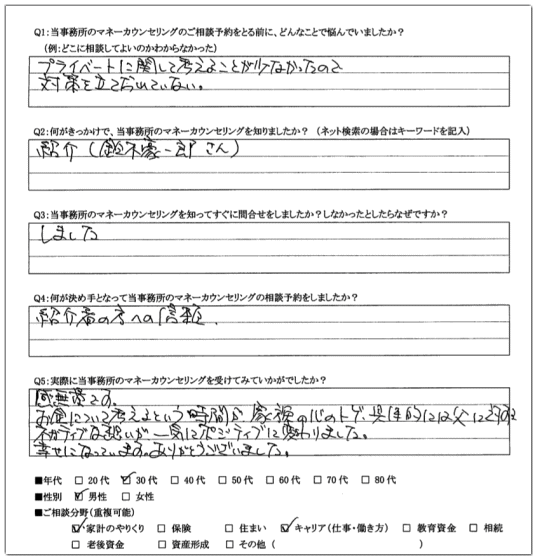 Q1:当事務所のマネーカウンセリングのご相談予約をとる前に、どんなことで悩んでいましたか?
(例:どこに相談してよいのかわからなかった)
プライベートに関して考えることが少なかったので
対策を立てられていない。
Q2:何がきっかけで、当事務所のマネーカウンセリングを知りましたか? (ネット検索の場合はキーワードを記入)
紹介(鈴木豪一郎さん)
Q3:当事務所のマネーカウンセリングを知ってすぐに問合せをしましたか?しなかったとしたらなぜですか?
しました
Q4:何が決め手となって当事務所のマネーカウンセリングの相談予約をしましたか?
紹介者の方への信頼.
Q5:実際に当事務所のマネーカウンセリングを受けてみていかがでしたか?
感無量です。
お金について考えるという時間が 家族の心のトゲ、具体的には父に対する
ネガティブな想いが一気にポジティブに変わりました。
幸せになっています。ありがとうございました。
■年代 □20代 ☑30代 □40代 □50代 □60代 □70代 □80代
■性別 ☑男性 □女性
■ご相談分野(重複可能)
☑家計のやりくり □保険 □住まい ☑キャリア(仕事・働き方) □教育資金 □相続
□老後資金 □資産形成 □その他( )